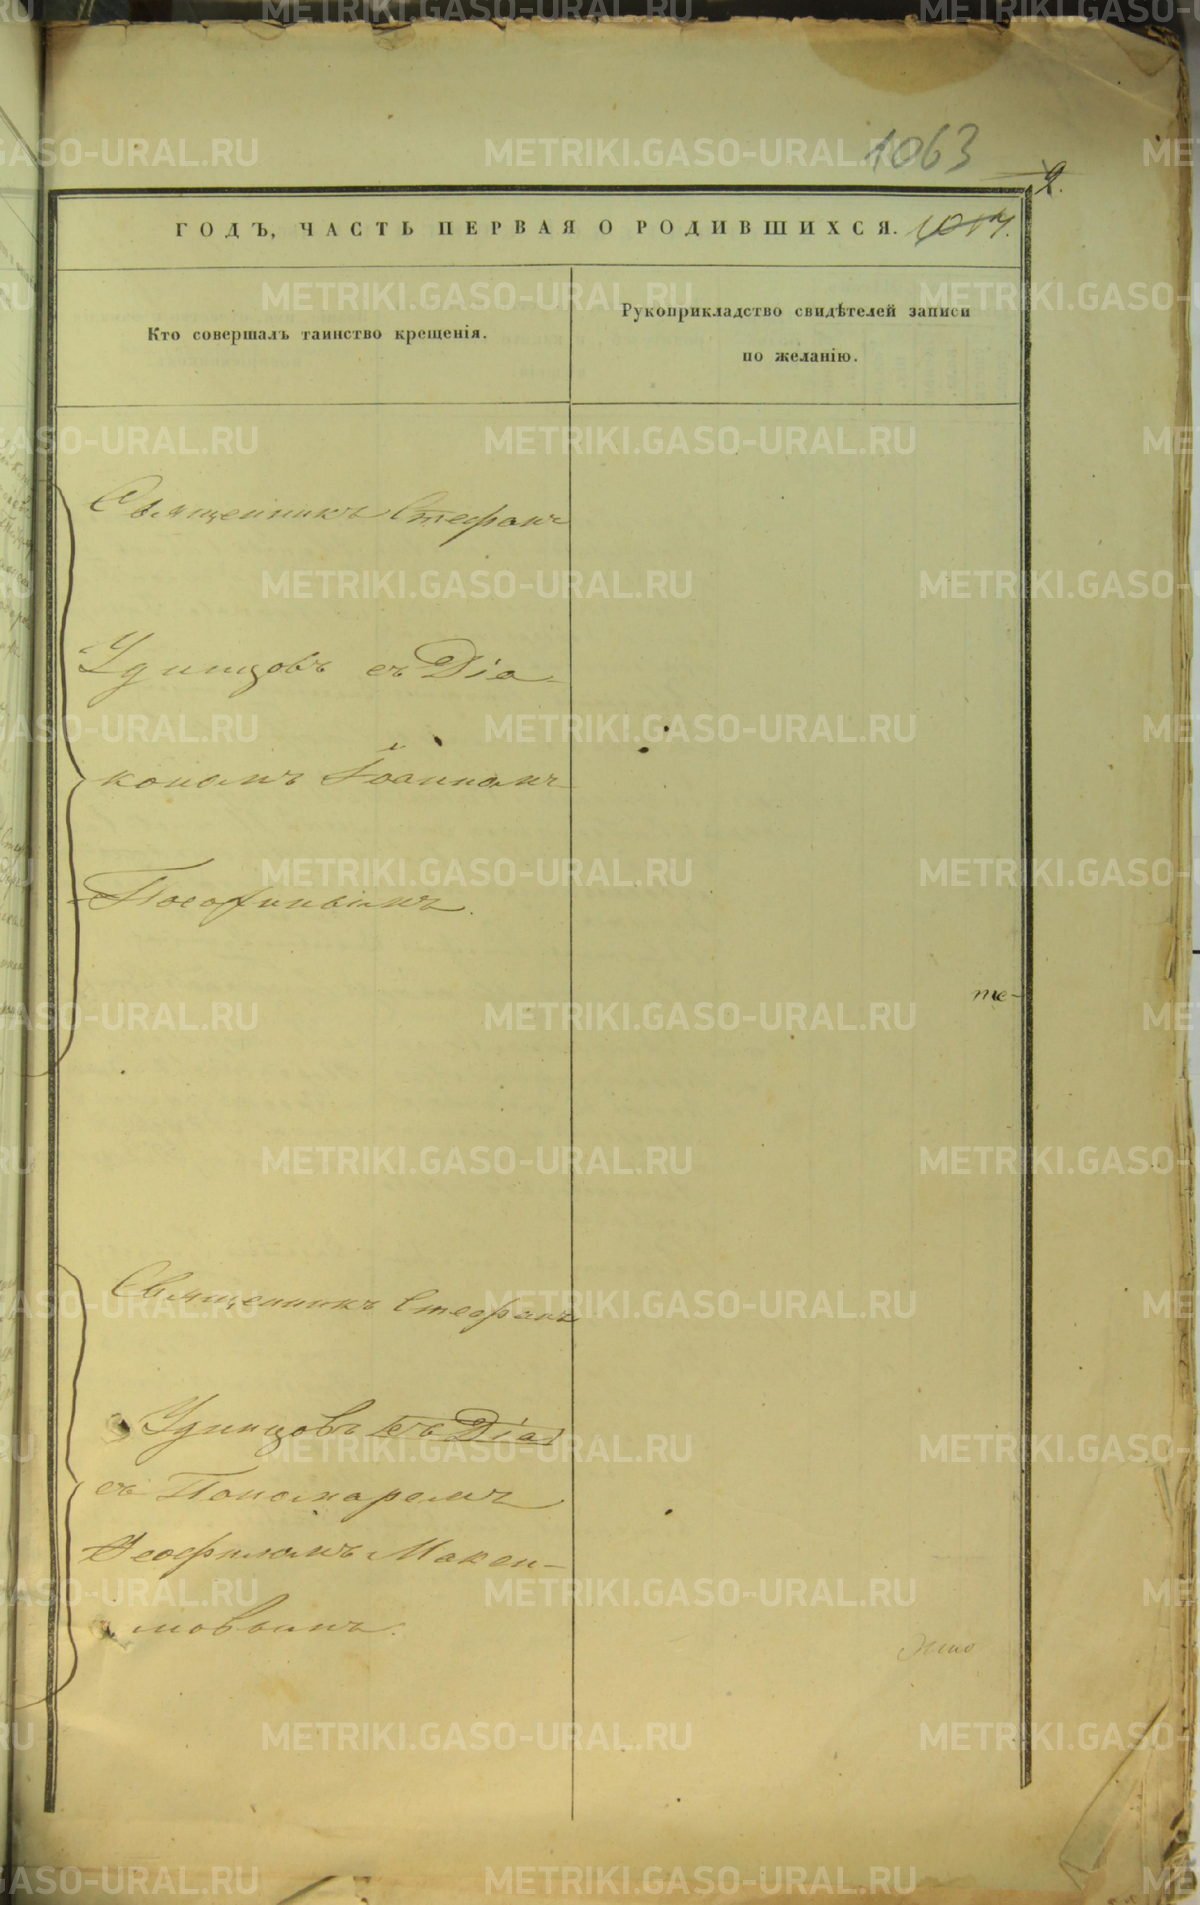 1063
9.
ГОДЪ, ЧАСТЬ ПЕРВАЯ О РОДИВШИХСЯ.
Кто совершалъ таинство крещенія.
Рукоприкладство свидѣтелей записи
по желанію.
Священникъ Стефанъ
Удинцовъ съ Діа-
кономъ Іоанномъ
те-
Священникъ Стефанъ
Удинцовъ съ Діа
съ Пономаремъ
Ѳеофиломъ Макси-
мовымъ.
METRIKI.GASO-URAL.RU